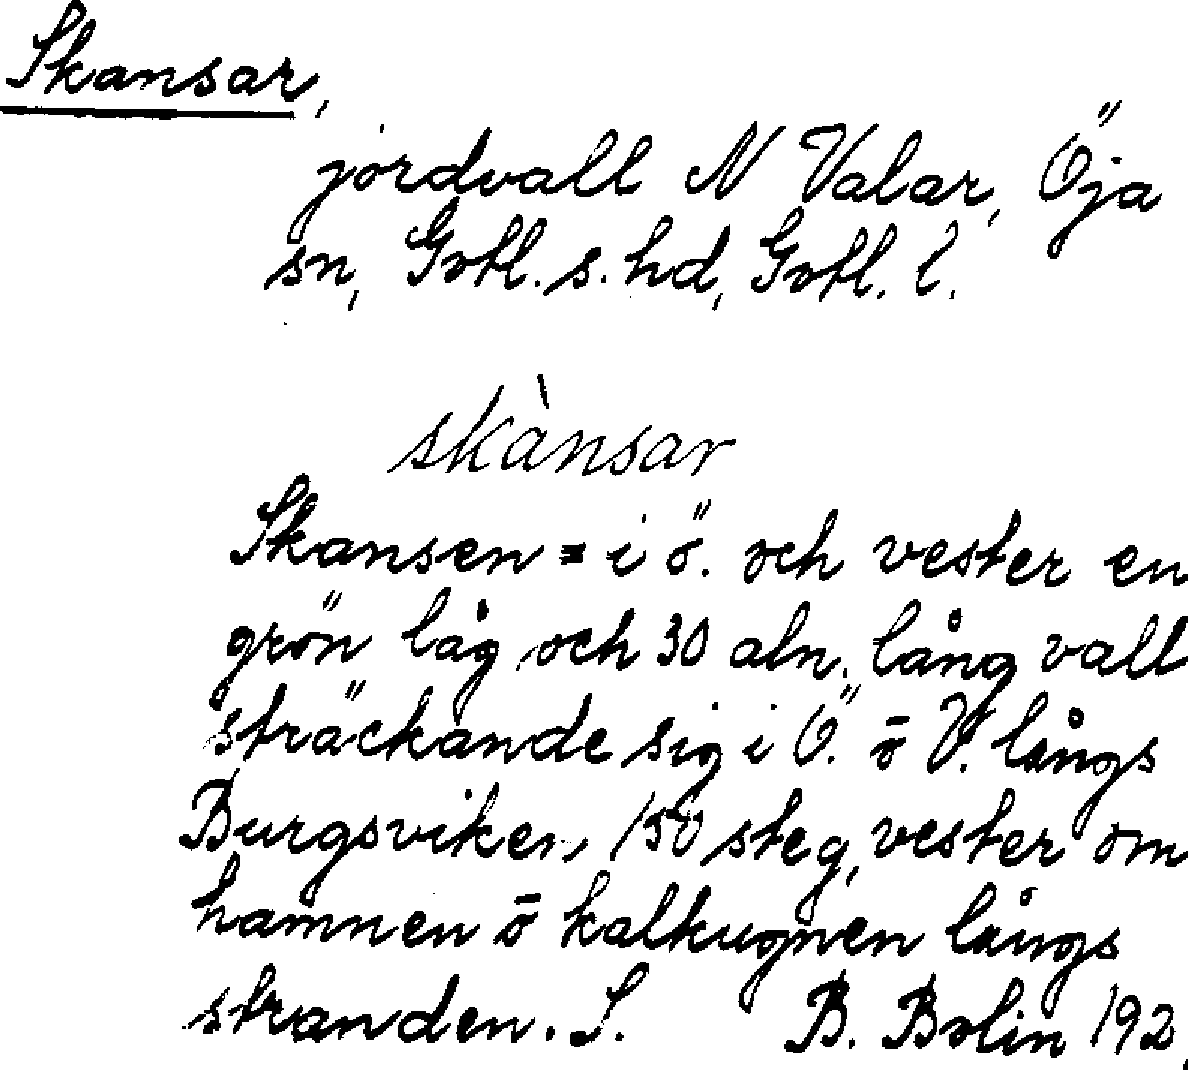 Skansar,
jordvall N Valar, Öja
sn, Gotl. s. hd, Gotl. l.
skànsar
Skansen = i ö. och vester en
grön låg och 30 aln. lång vall
sträckande sig i Ö. ō V. långs
Burgsviken 150 steg, vester om
hamnen ō kalkugnen långs
stranden. S. B. Bolin 192